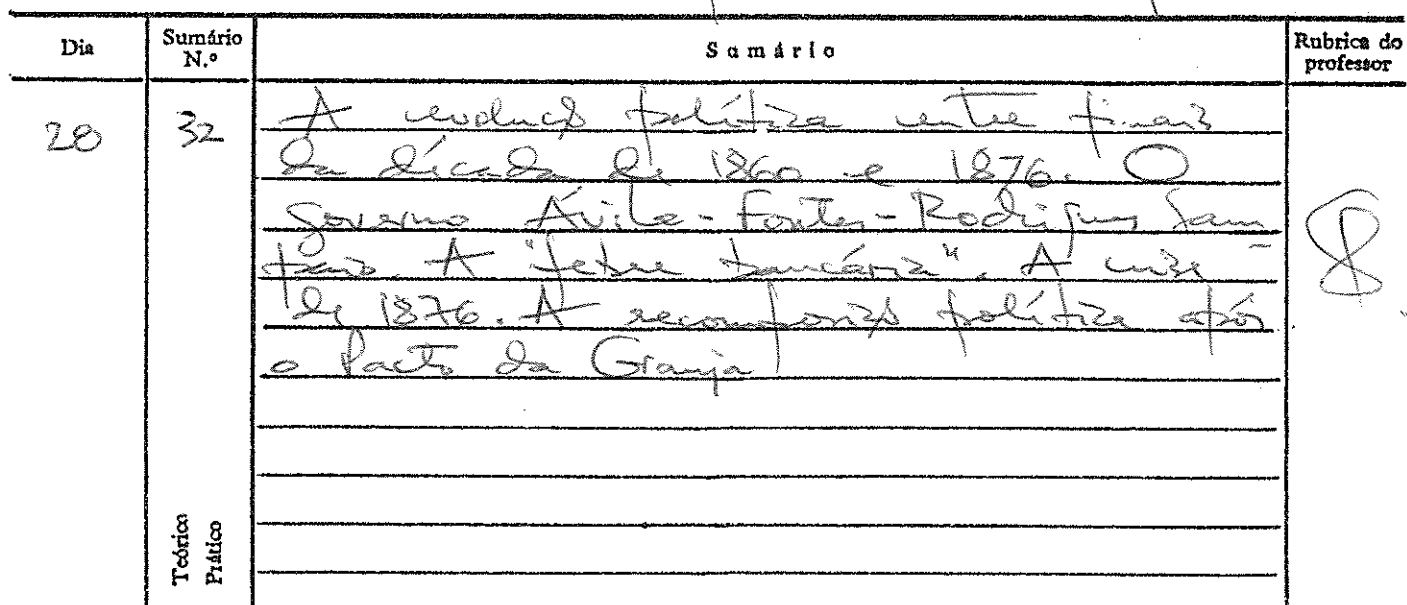 Dia Sumário N.º Sumário Rubrica do professor
28 32 A evolução política entre finais
da década de 1860 e 1876. O
governo Ávila-Fontes-Rodrigues Sam
paio. A "febre bancária". A crise
de 1876. A recomposição política após
o Pacto da Granja
Teórico
Prático